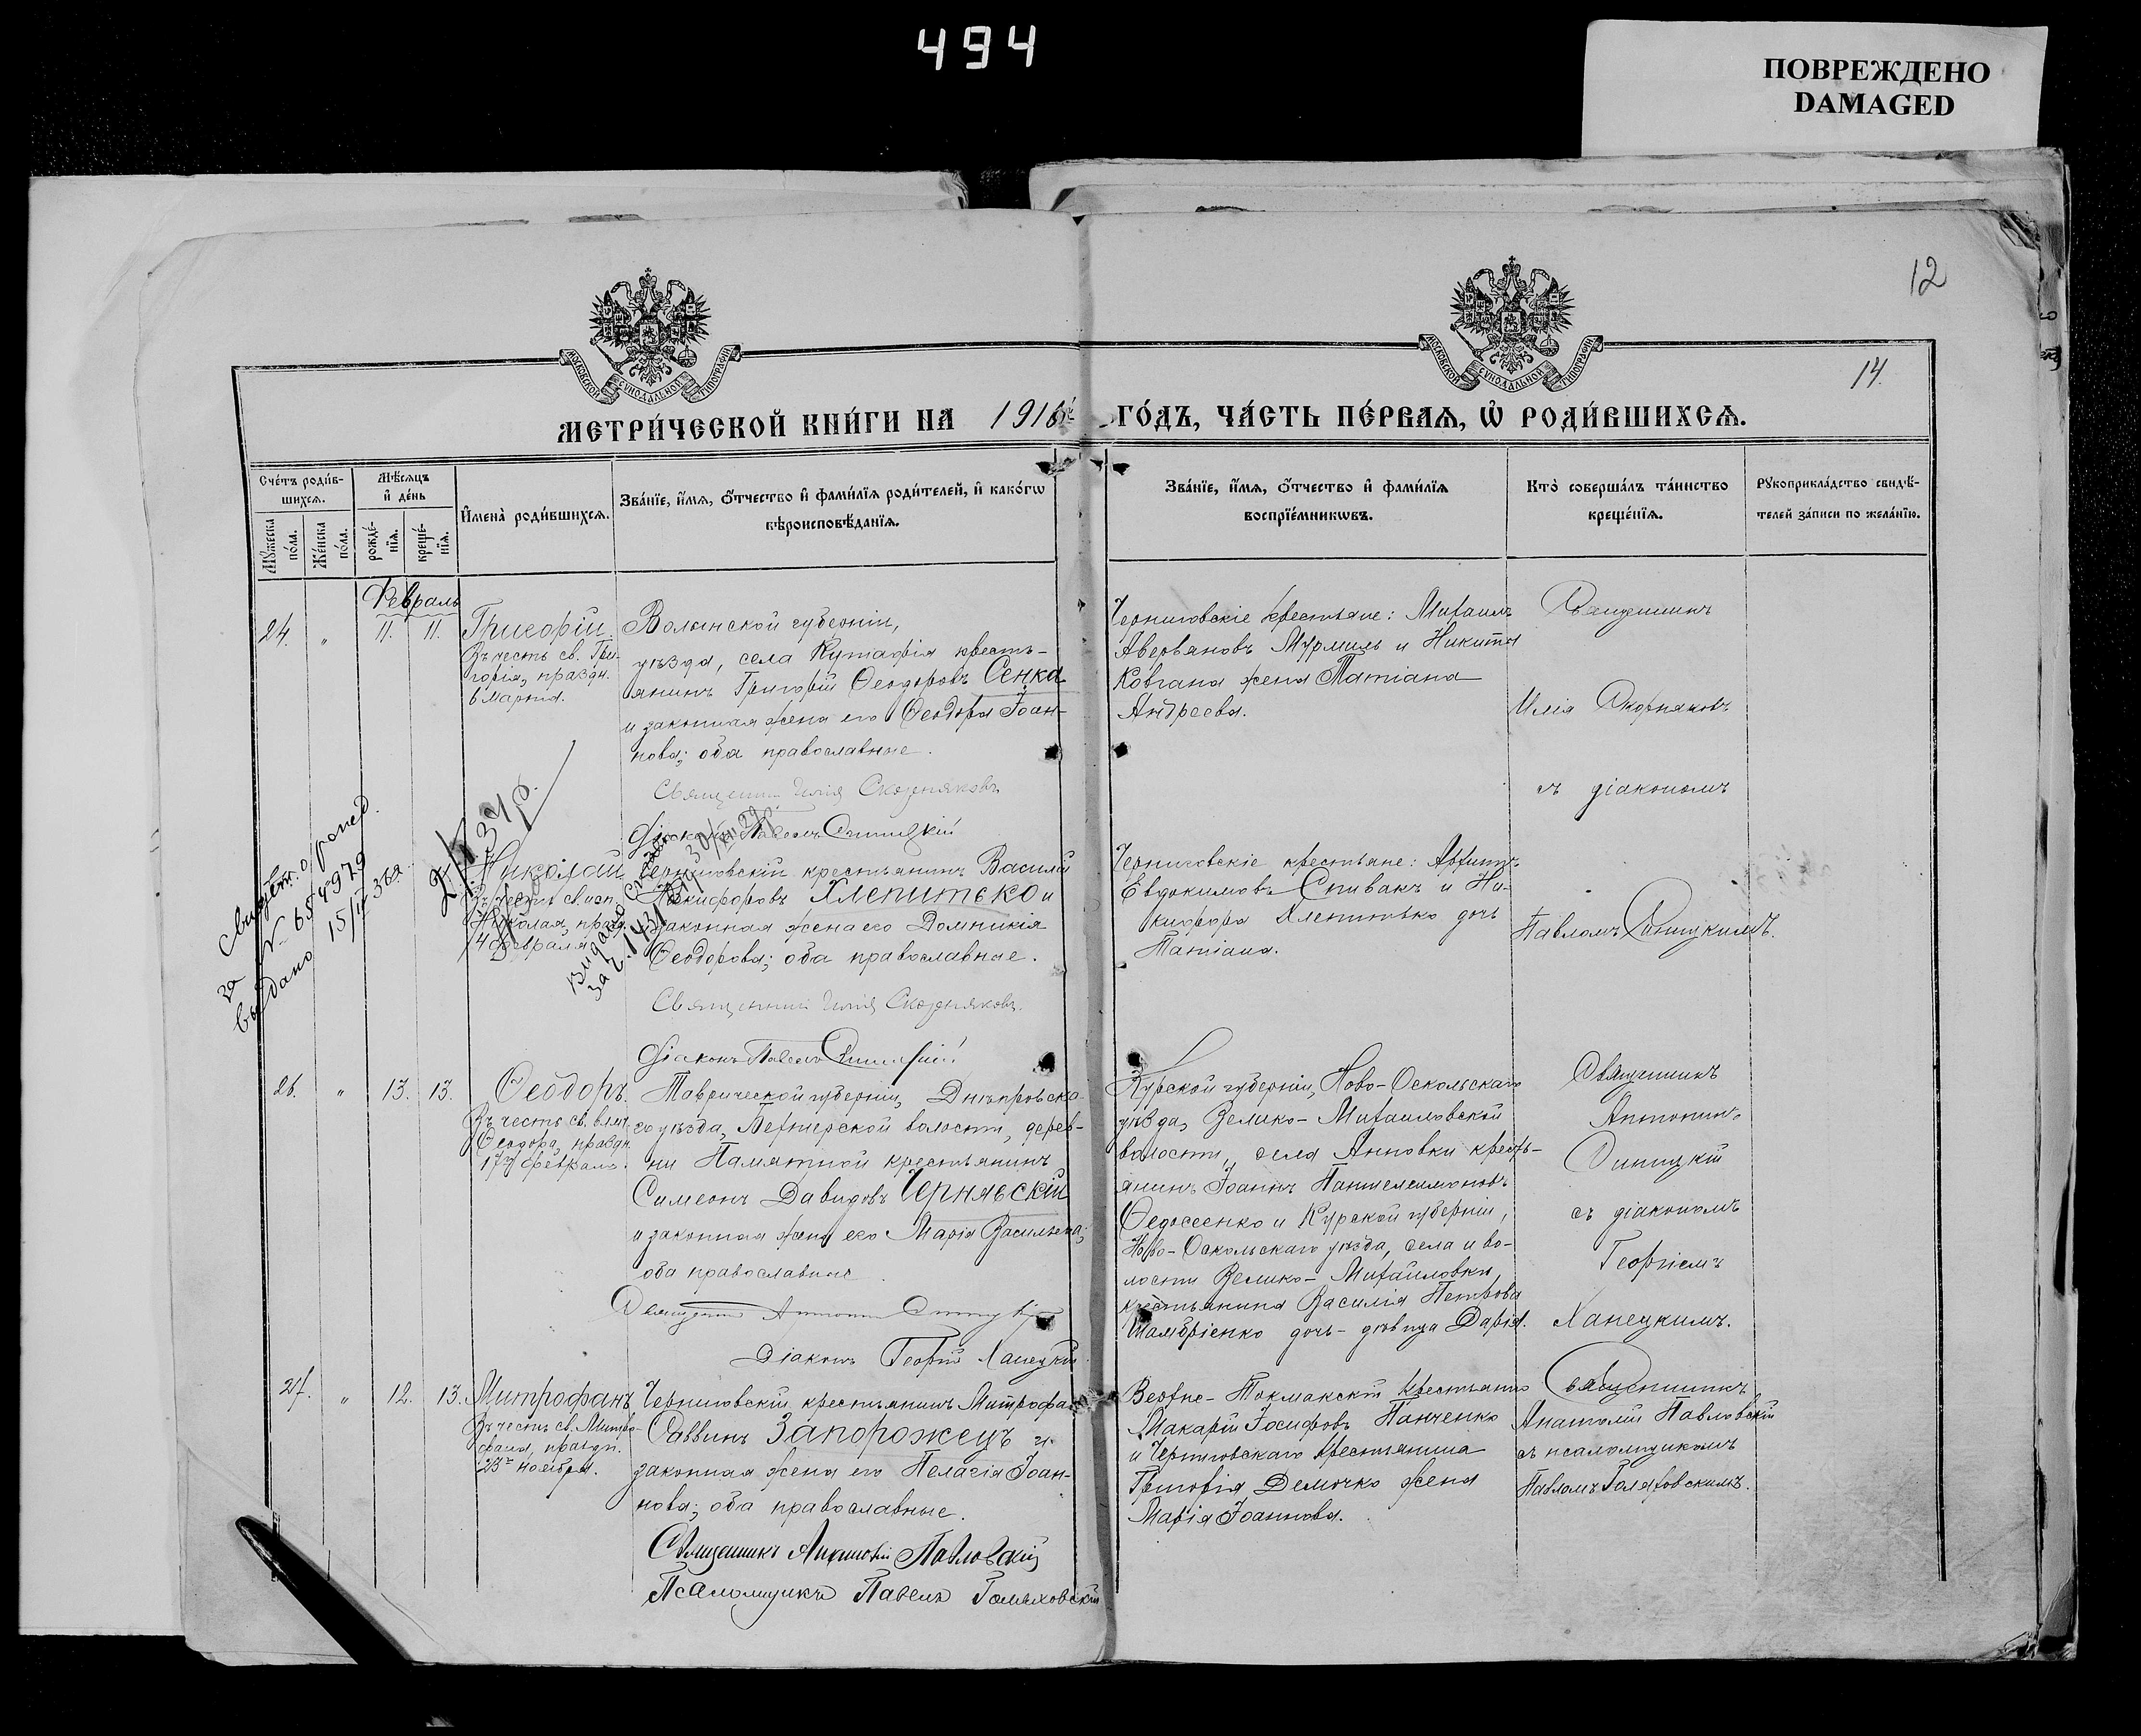 494
ПОВРЕЖДЕНО
DAMAGED
12
14.
МОСКОВСКОЙ СѴНОДАЛЬНОЙ ТИПОГРАФІИ
МОСКОВСКОЙ СѴНОДАЛЬНОЙ ТИПОГРАФІИ
МЕТРИ́ЧЕСКОЙ КНИ́ГИ НА 1916й ГО́ДЪ, ЧА́СТЬ ПЕ́РВАѦ, Ѡ҆ РОДИ́ВШИХСѦ.
Сче́тъ роди́в-
шихсѧ.
Мꙋ́жеска по́ла.
Же́нска по́ла.
Мѣ́сѧцъ
и҆ де́нь
рожде́-
нїѧ.
креще́-
нїѧ.
И҆мена̀ роди́вшихсѧ.
Зва́нїе, и҆́мѧ, ѻ҆́тчество и҆ фами́лїѧ роди́телей, и҆ како́гѡ
вѣроисповѣ́данїѧ.
Зва́нїе, и҆́мѧ, ѻ҆́тчество и҆ фами́лїѧ
воспрїе́мникѡвъ.
Кто̀ соверша́лъ та́инство
креще́нїѧ.
Рꙋкоприкла́дство свидѣ́-
телей за́писи по жела́нїю.
Февраль
24. " 11. 11. Григорій.
Въ честь св. Гри-
горія, праздн.
6 марта.
Волынской губерніи,
уѣзда, села Кутафія кресть-
янинъ Григорій Ѳеодоровъ Сенка
и законная жена его Ѳеодора Іоан-
нова; оба православные.
Священник Илія Скорняковъ
Діаконъ Павелъ Синицкій
Черниговскіе крестьяне: Михаилъ
Аверьяновъ Мурмиль и Никиты
Ковгана жена Татіана
Андреева.
Священникъ
Илія Скорняковъ
съ діакономъ
Павломъ Синицкимъ.
Свидет. о рожд.
за № 654979
выдано 15/II 36г.
Николай
Въ честь св.
Николая, празд.
14 февраля
Черниговскій крестьянинъ Василій
Никифоровъ Хлепитько и
законная жена его Домникія
Ѳеодорова; оба православные.
Священникъ Илія Скорняковъ.
Діаконъ Павелъ Синицкій
Черниговскіе крестьяне:
Евдокимовъ Спивакъ и Ни-
кифора Хлепитько дочь
Татіана.
26. " 13. 13. Ѳеодоръ.
Въ честь св. влмч.
Ѳеодора, праздн.
17 февраля.
Таврической губерніи, Днѣпровска-
го уѣзда, волости, дерев-
ни Памятной крестьянинъ
Симеонъ Давидовъ Чернявскій
и законная жена его Марія Васильева;
оба православные
Священникъ Антонин Синицкій
Діаконъ Георгій Ханецкій
Курской губерніи, Ново-Оскольскаго
уѣзда, Велико-Михайловской
волости, села Анновки кресть-
янинъ Іоаннъ Пантелеимоновъ
Ѳедосеенко и Курской губерніи,
Ново-Оскольскаго уѣзда, села и во-
лости Велико-Михайловки,
крестьянина Василія Петрова
дочь-дѣвица Дарія.
Священникъ
Антонинъ
Синицкій
съ діакономъ
Георгіемъ
Ханецкимъ.
27. " 12. 13. Митрофанъ
Въ честь св. Митро-
фана, праздн.
23го ноября.
Черниговскій крестьянинъ Митрофанъ
Саввинъ Запорожецъ и
законная жена его Пелагія Іоан-
нова; оба православные.
Священникъ Анатолій Павловскій
Псаломщикъ Павелъ Голяховскій
Верхне-Токмакскій крестьянинъ
Макарій Іосифовъ Панченко
и Черниговскаго крестьянина
Григорія Демочко жена
Марія Іоаннова.
Священникъ
Анатолій Павловскій
съ псаломщикомъ
Павломъ Голяховскимъ.